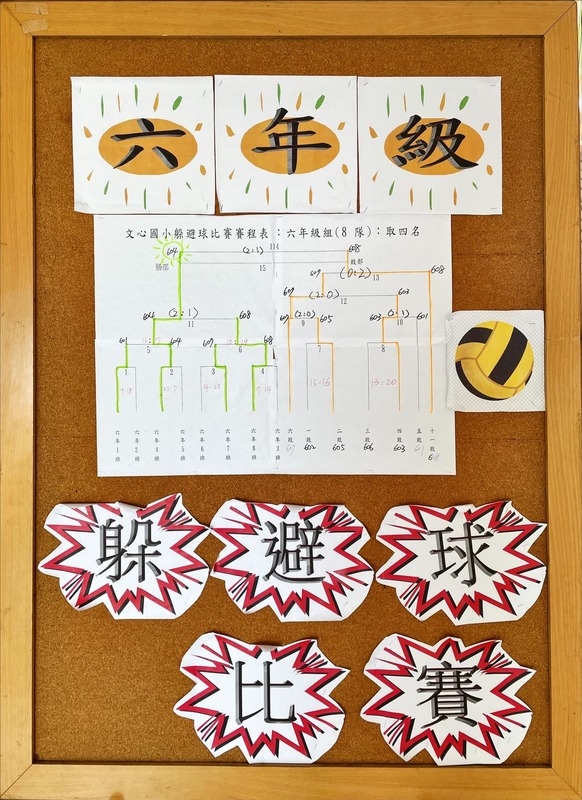 六年級
文心國小躲避球比賽賽程表:六年級組(8 隊):取四名
604 (2:1) 114 608
勝部 15 敗部
607 (0:2) 608
13
607 (2:0) 603
12
604 (2:1) 608
11
607 (2:0) 605 603 (2:1) 601
9 10
601 604 607 608
5 6 7 8
1 2 3 4
15:16 13:20
六年1班 六年2班 六年4班 六年5班 六年6班 六年7班 六年8班 六年3班 六敗 一敗 二敗 三敗 四敗 五敗 十一敗
602 605 606 603 608
躲避球
比賽